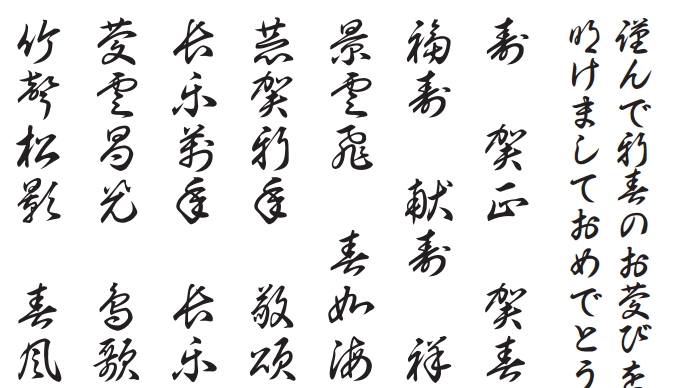 謹んで新春のお慶びを
明けましておめでとう
寿 賀正 賀春
福寿 献寿 祥
景雲飛 春如海
恭賀新年 敬頌
長楽萬年 長楽
慶雲昌光 鳥歌
竹聲松影 春風